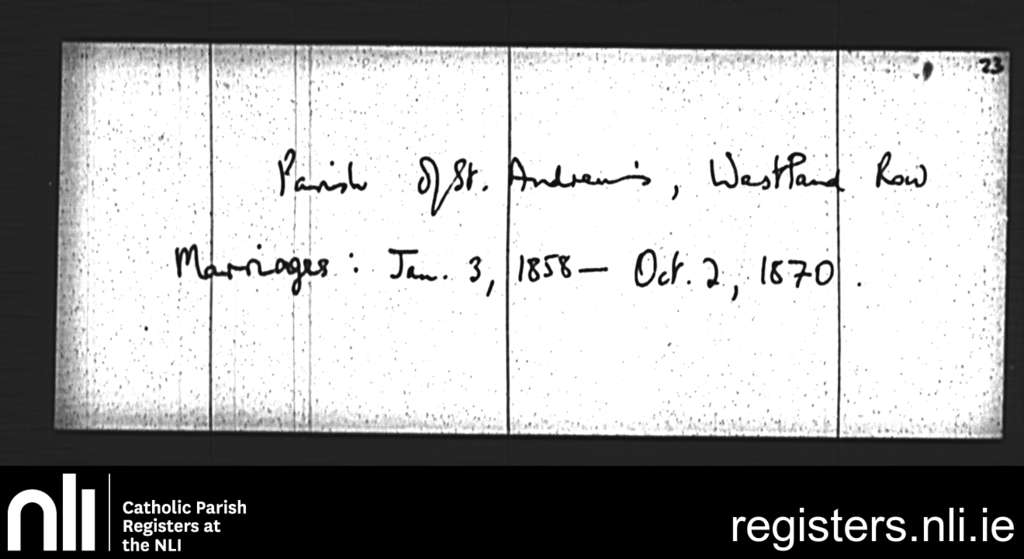 23
Parish of St. Andrew's, Westland Row
Marriages: Jan. 3, 1858 — Oct. 2, 1870.
nli
Catholic Parish
Registers at
the NLI
registers.nli.ie